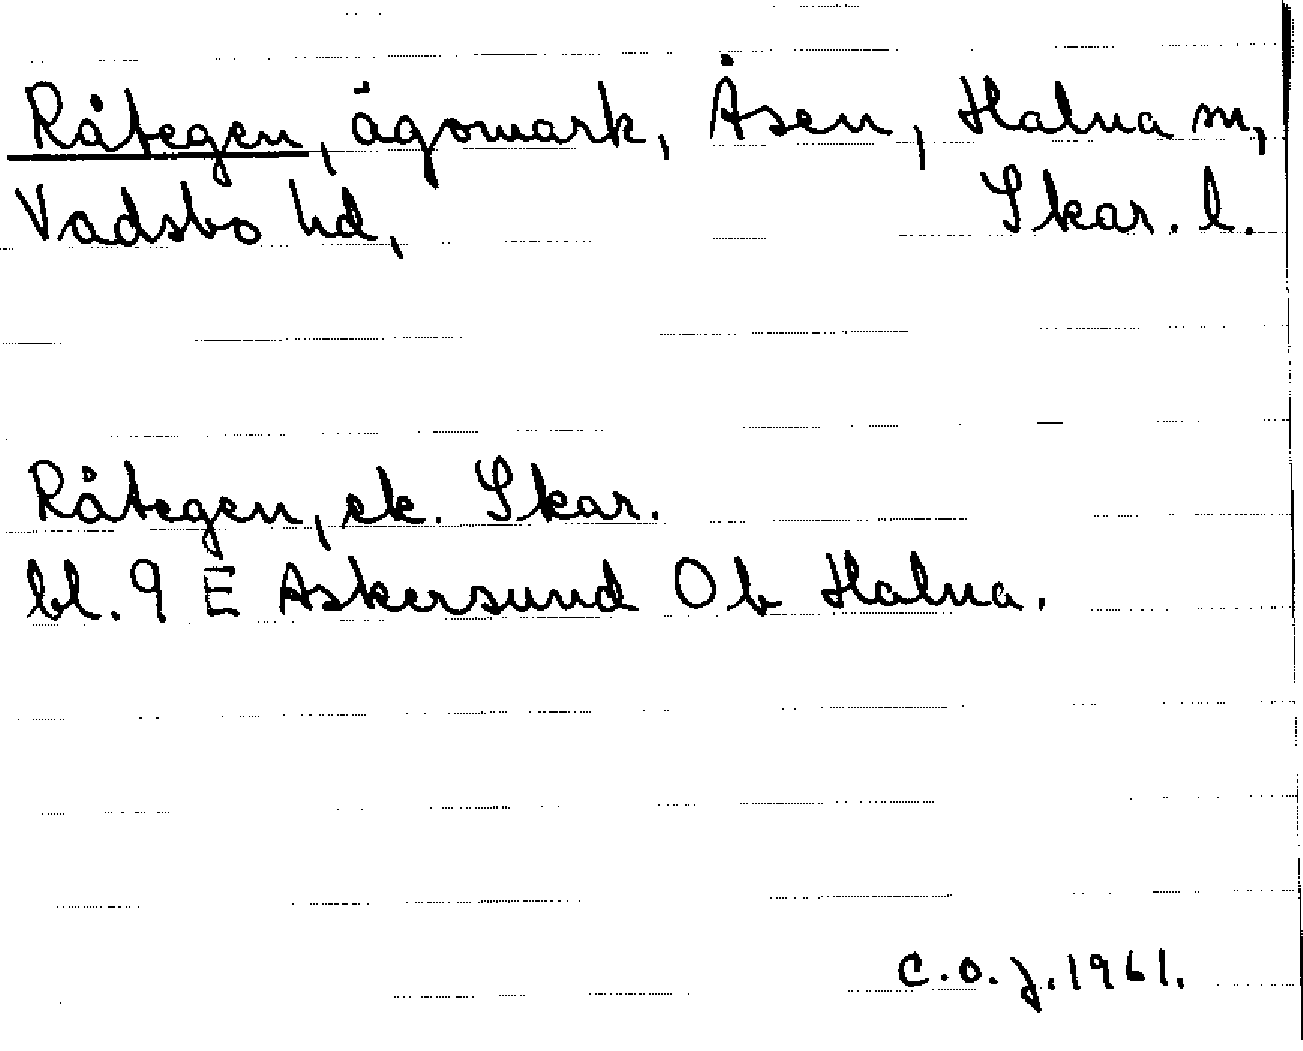 Råtegen, ägomark, Åsen, Halna sn,
Vadsbo hd, Skar. l.
Råtegen, ek. Skar.
bl. 9 E Askersund 0 b Halna.
C.O.J. 1961.